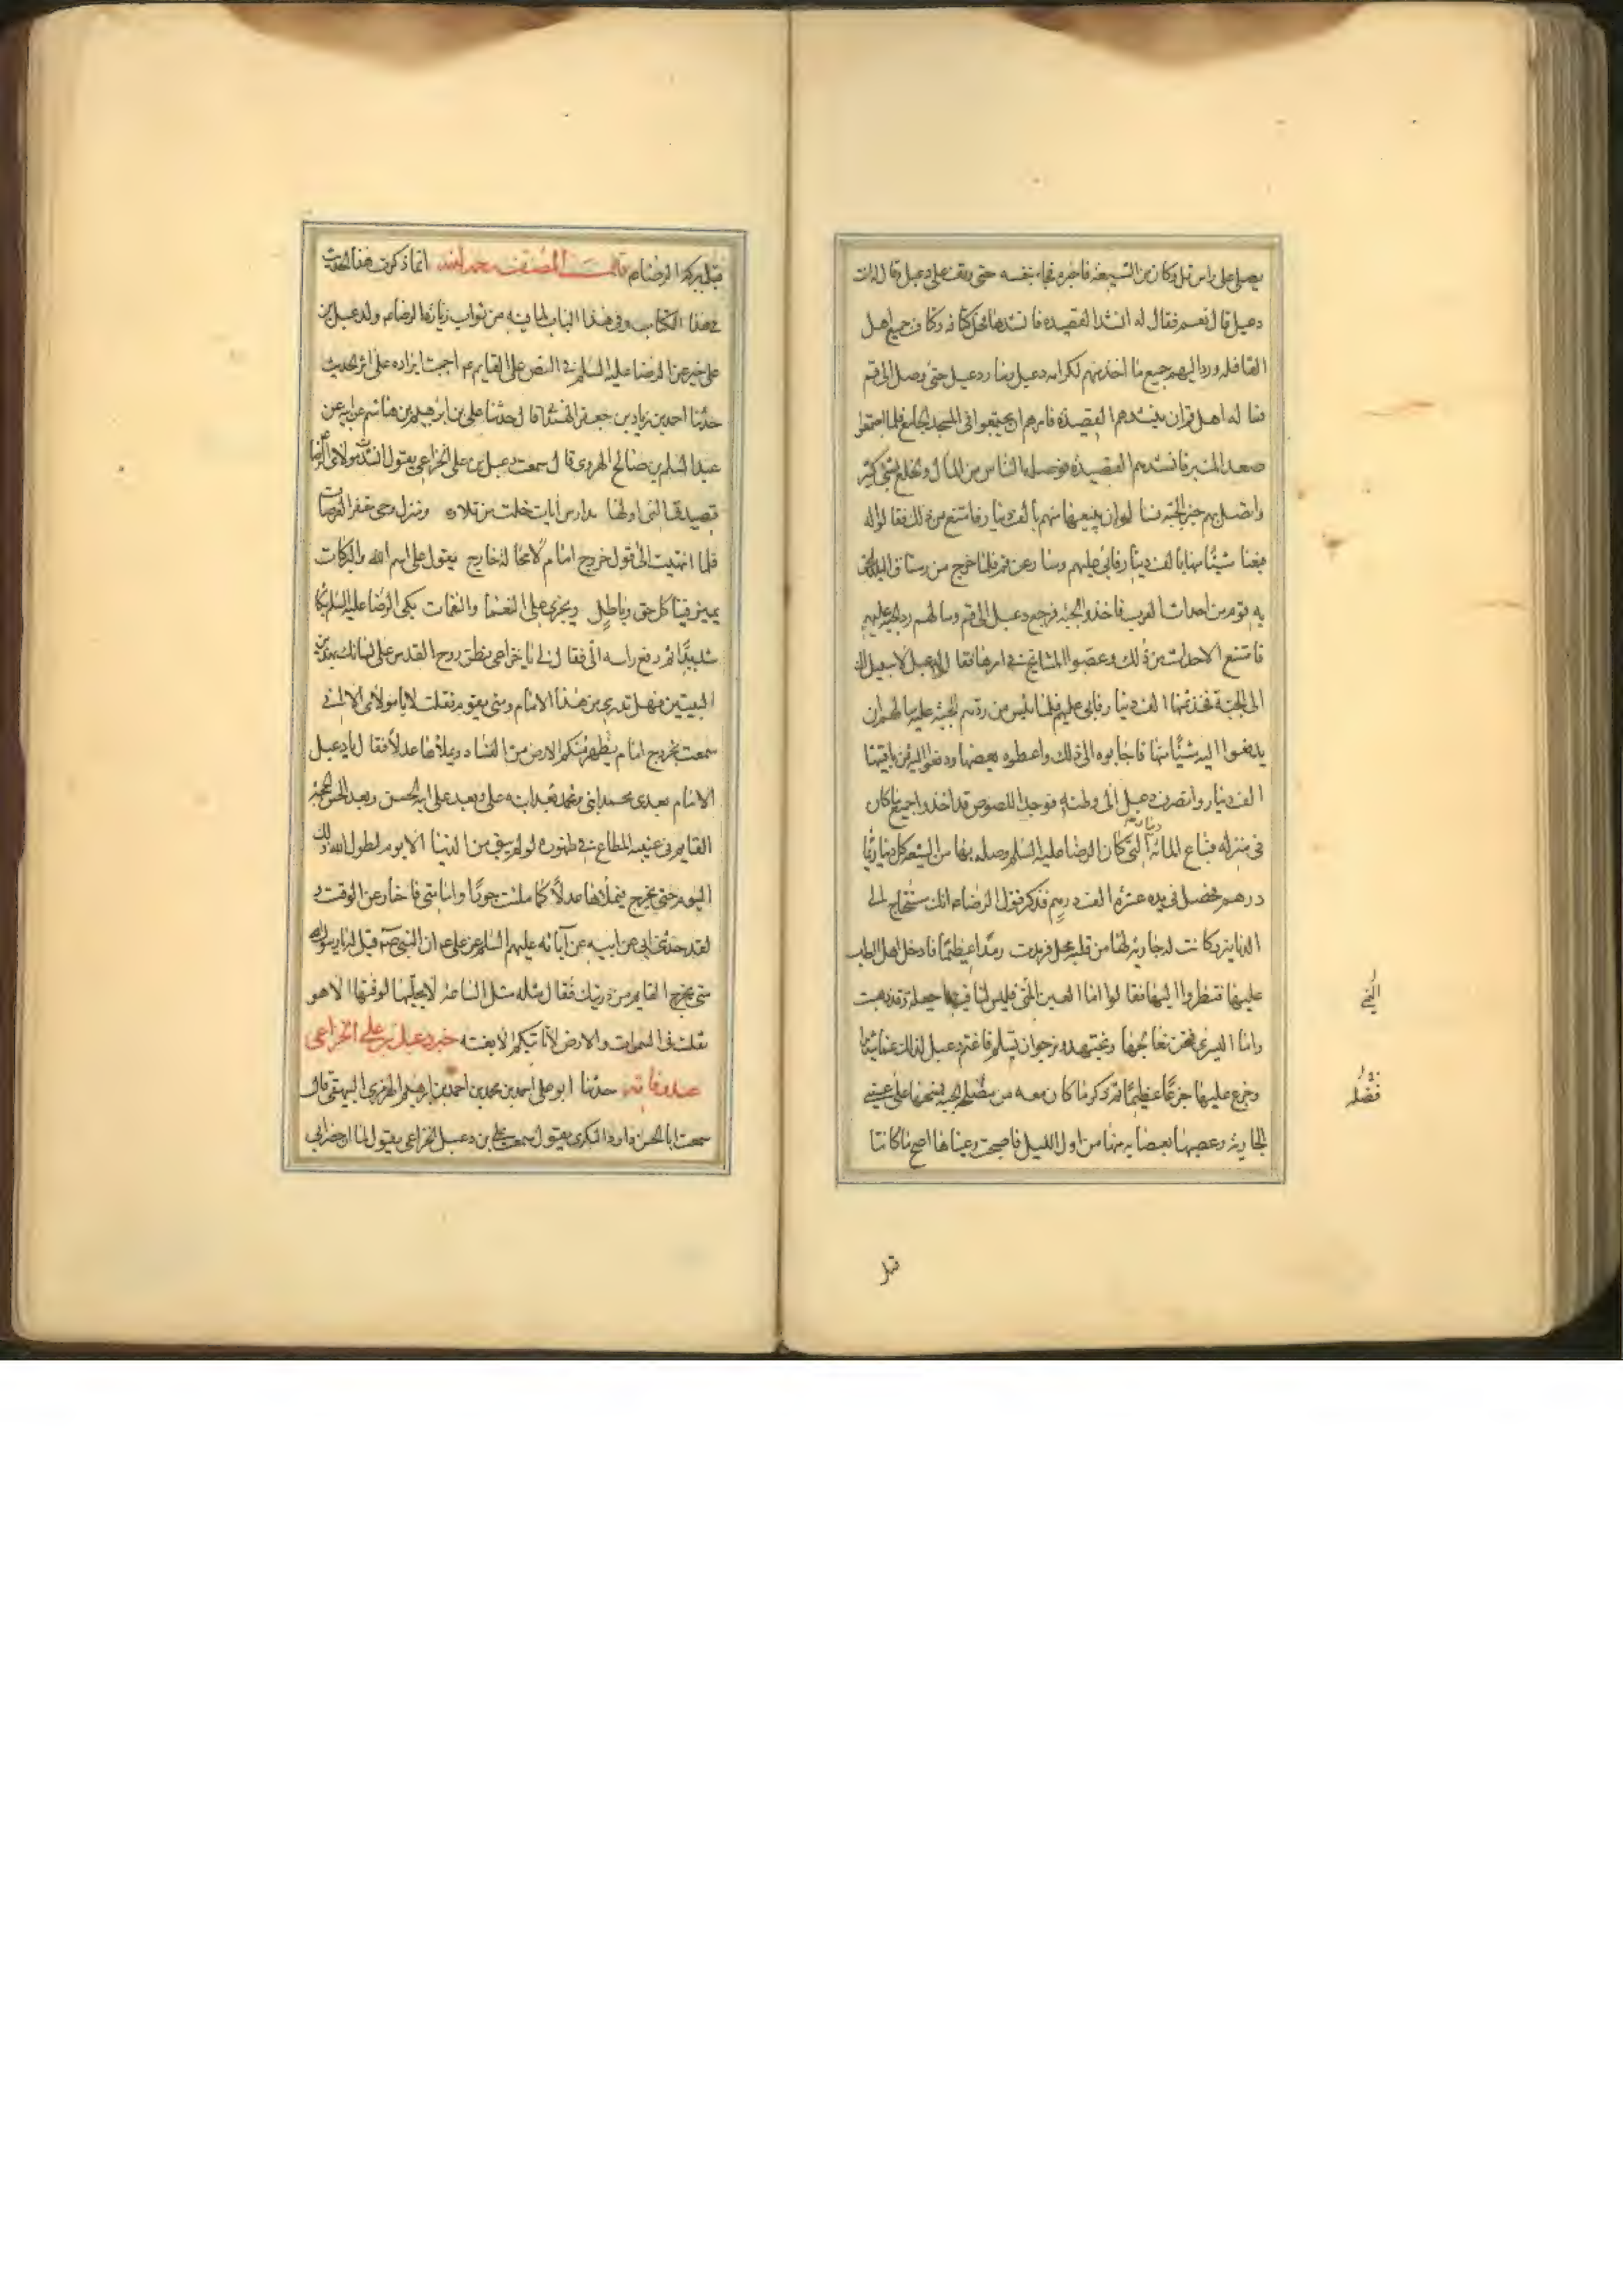 يصلى على راس تل وكان من الشيعة فاخبره فجاء بنفسه حتى وقف على دعبل وقال له انت
دعبل قال نعم فقال له انشد القصيده فانشدها فحل كتافه وكتاف جميع اهل
القافله ورد اليهم جميع ما اخذ منهم لكرامه دعبل وسار دعبل حتى وصل الى قم
فساله اهل قم ان ينشدهم القصيده فامرهم ان يجتمعوا فى المسجد الجامع فلما اجتمعوا
صعد المنبر فانشدهم القصيده فوصله الناس من المال والخلع بشئ كثير
واتصل بهم خبر الجبه فسالوه ان يبيعها منهم بالف دينار فامتنع من ذلك فقالوا له
فبعنا شيئا منها بالف دينار فابى عليهم وسار عن قم فلما خرج من رستاق البلد لحق
به قوم من احداث العرب فاخذوا الجبه فرجع دعبل الى قم وسالهم رد الجبه عليه
فامتنع الاحداث من ذلك وعصوا المشايخ فى امرها فقالوا لدعبل لا سبيل لك
الى الجبة فخذ ثمنها الف دينار فابى عليهم فلما يئس من ردهم الجبه عليه سالهم ان
يدفعوا اليه شيئا منها فاجابوه الى ذلك واعطوه بعضها ودفعوا اليه ثمن باقيها
الف دينار وانصرف دعبل الى وطنه فوجد اللصوص قد اخذوا جميع ما كان
فى منزله فباع المائه دينار التى كان الرضا عليه السلم وصله بها من الشيعه كل دينار بمائة
درهم فحصل فى يده عشرة الف درهم فذكر قول الرضا ع انك ستحتاج الى
الدنانير وكانت له جاريه لها من قلبه محل فرمدت رمدا عظيما فادخل اهل الطب
عليها فنظروا اليها فقالوا اما العين اليمنى فليس لنا فيها حيلة وقد ذهبت
واما اليسرى فنحن نعالجها ونجتهد ونرجو ان تسلم فاغتم دعبل لذلك غما شديدا
وجزع عليها جزعا عظيما ثم ذكر ما كان معه من فضلة الجبه فمسحها على عينى
الجاريه وعصبها بعصابه منها من اول الليل فاصبحت وعيناها اصح مما كانتا
قبل
قبل ببركه الرضا ع قال المصنف رحمه الله انما ذكرت هذا الحديث
فى هذا الكتاب وفى هذا الباب لما فيه من ثواب زيارة الرضا ع ولدعبل بن
على خبر عن الرضا عليه السلم فى النص على القايم ع احببت ايراده على اثر الحديث
حدثنا احمد بن زياد بن جعفر الهمدانى قال حدثنا على بن ابرهيم بن هاشم عن ابيه عن
عبد السلم بن صالح الهروى قال سمعت دعبل بن على الخزاعى يقول انشدت مولاى الرضا
قصيدتى التى اولها مدارس ايات خلت من تلاوه ومنزل وحى مقفر العرصات
فلما انتهيت الى قول خروج امام لا محالة خارج يقول على اسم الله والبركات
يميز فينا كل حق وباطل ويجزى على النعماء والنقمات بكى الرضا عليه السلم بكاء
شديدا ثم رفع راسه الى فقال لى يا خزاعى نطق روح القدس على لسانك بهذين
البيتين فهل تدرى من هذا الامام ومتى يقوم فقلت لا يا مولاى الا انى
سمعت بخروج امام منكم يطهر الارض من الفساد ويملاها عدلا فقال يا دعبل
الامام بعدى محمد ابنى وبعد محمد ابنه على وبعد على ابنه الحسن وبعد الحسن ابنه الحجة
القايم فى غيبته المطاع فى ظهوره لو لم يبق من الدنيا الا يوم لطول الله ذلك
اليوم حتى يخرج فيملاها عدلا كما ملئت جورا واما متى فاخبار عن الوقت و
لقد حدثنى ابى عن ابيه عن آبائه عليهم السلم عن على ع ان النبى ص قيل له يا رسول الله
متى يخرج القايم من ذريتك فقال مثله مثل الساعة لا يجليها لوقتها الا هو
ثقلت فى السموات والارض لا تاتيكم الا بغته خبر دعبل بن على الخزاعى
عند وفاته حدثنا ابو على احمد بن محمد بن احمد بن ابرهيم الهرمزى البيهقى قال
سمعت ابا الحسن داود البكرى يقول سمعت على بن دعبل الخزاعى يقول لما ان حضر ابى